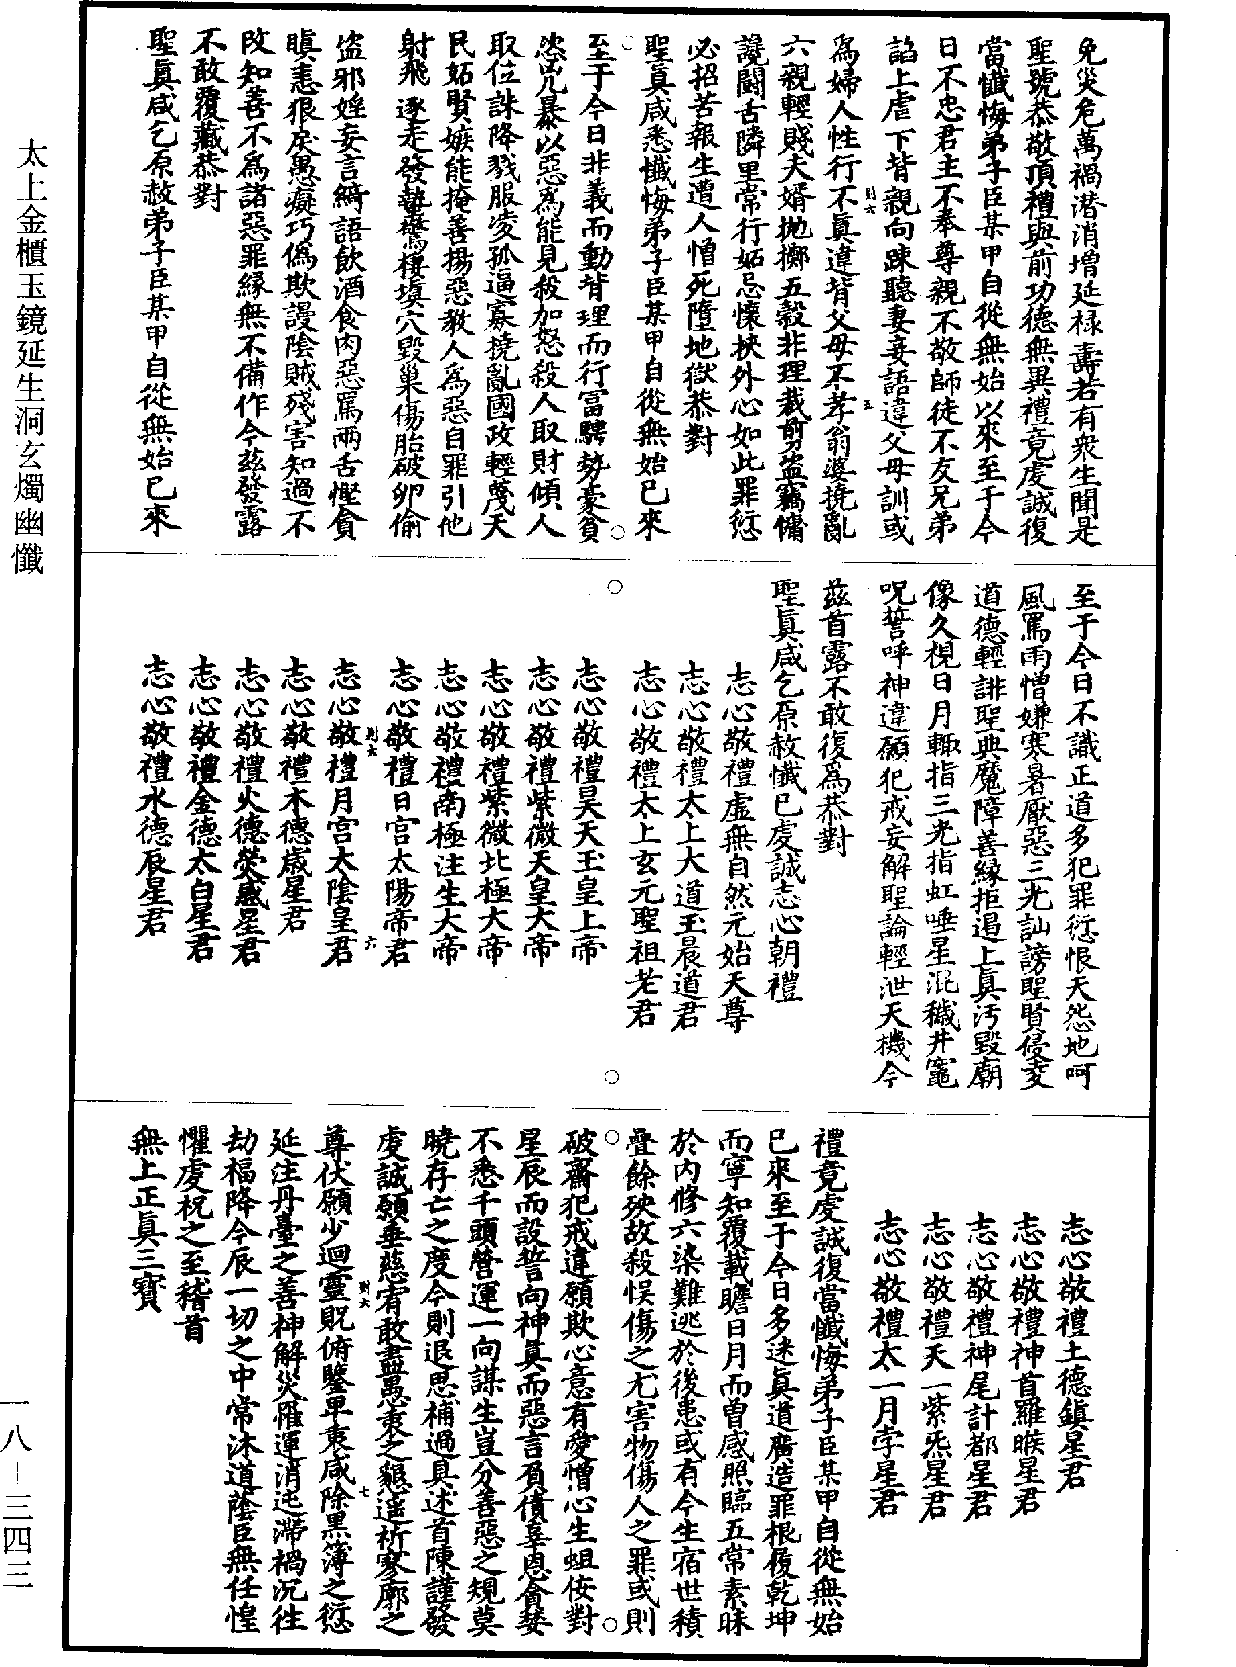 太上金櫃玉鏡延生洞玄燭幽懺
免災危萬禍潛消增延祿壽若有衆生聞是
聖號恭敬頂禮與前功德無異禮竟虔誠復
當懺悔弟子臣某甲自從無始以來至于今
日不忠君主不奉尊親不敬師徒不友兄弟
諂上虐下背親向踈聽妻妾語違父母訓或
爲婦人性行不眞違背父母不孝翁婆撓亂
六親輕賤夫婿拋擲五穀非理裁剪盜竊傭
讒鬪舌隣里常行妬忌懷挾外心如此罪愆
必招苦報生遭人憎死墮地獄恭對
聖眞咸悉懺悔弟子臣某甲自從無始已來
至于今日非義而動背理而行富騁勢豪貧
恣咒暴以惡爲能見殺加怒殺人取財傾人
取位誅降戮服凌孤逼寡撓亂國政輕蔑天
民妬賢嫉能掩善揚惡教人爲惡自罪引他
射飛逐走發蟄驚棲塡穴毀巢傷胎破卵偷
盜邪婬妄言綺語飲酒食肉惡罵兩舌慳貪
瞋恚狠戾愚癡巧僞欺謾陰賊殘害知過不
改知善不爲諸惡罪緣無不備作今兹發露
不敢覆藏恭對
聖眞咸乞原赦弟子臣某甲自從無始已來
至于今日不識正道多犯罪愆恨天怨地呵
風罵雨憎嫌寒暑厭惡三光訕謗聖賢侵叜
道德輕誹聖典魔障善緣拒遏上眞汚毀廟
像久視日月輙指三光指虹唾星混穢井竈
呪誓呼神違願犯戒妄解聖論輕泄天機今
兹首露不敢復爲恭對
聖眞咸乞原赦懺已虔誠志心朝禮
志心敬禮虛無自然元始天尊
志心敬禮太上大道玉晨道君
志心敬禮太上玄元聖祖老君
志心敬禮昊天玉皇上帝
志心敬禮紫微天皇大帝
志心敬禮紫微北極大帝
志心敬禮南極注生大帝
志心敬禮日宮太陽帝君
志心敬禮月宮太陰皇君
志心敬禮木德歲星君
志心敬禮火德熒惑星君
志心敬禮金德太白星君
志心敬禮水德辰星君
志心敬禮土德鎮星君
志心敬禮神首羅睺星君
志心敬禮神尾計都星君
志心敬禮天一紫炁星君
志心敬禮太一月孛星君
禮竟虔誠復當懺悔弟子臣某甲自從無始
已來至于今日多迷眞道廣造罪根履乾坤
而寧知覆載瞻日月而曾感照臨五常素昧
於內修六染難逃於後患或有今生宿世積
疊餘殃故殺悞傷之尤害物傷人之罪或則
破齋犯戒違願欺心意有愛憎心生蛆侫對
星辰而設誓向神眞而惡言負債辜恩貪婪
不悉千頭營運一向謀生豈分善惡之規莫
曉存亡之度今則退思補過具述首陳謹發
虔誠願垂慈宥敢盡愚衷之懇遥祈寥廓之
尊伏願少迴靈貺俯鑒卑衷咸除黑簿之愆
延注丹臺之善神解災羅運消迍滯禍沉往
劫福降今辰一切之中常沐道蔭臣無任惶
懼虔祝之至稽首
無上正眞三寶
一八－三四三